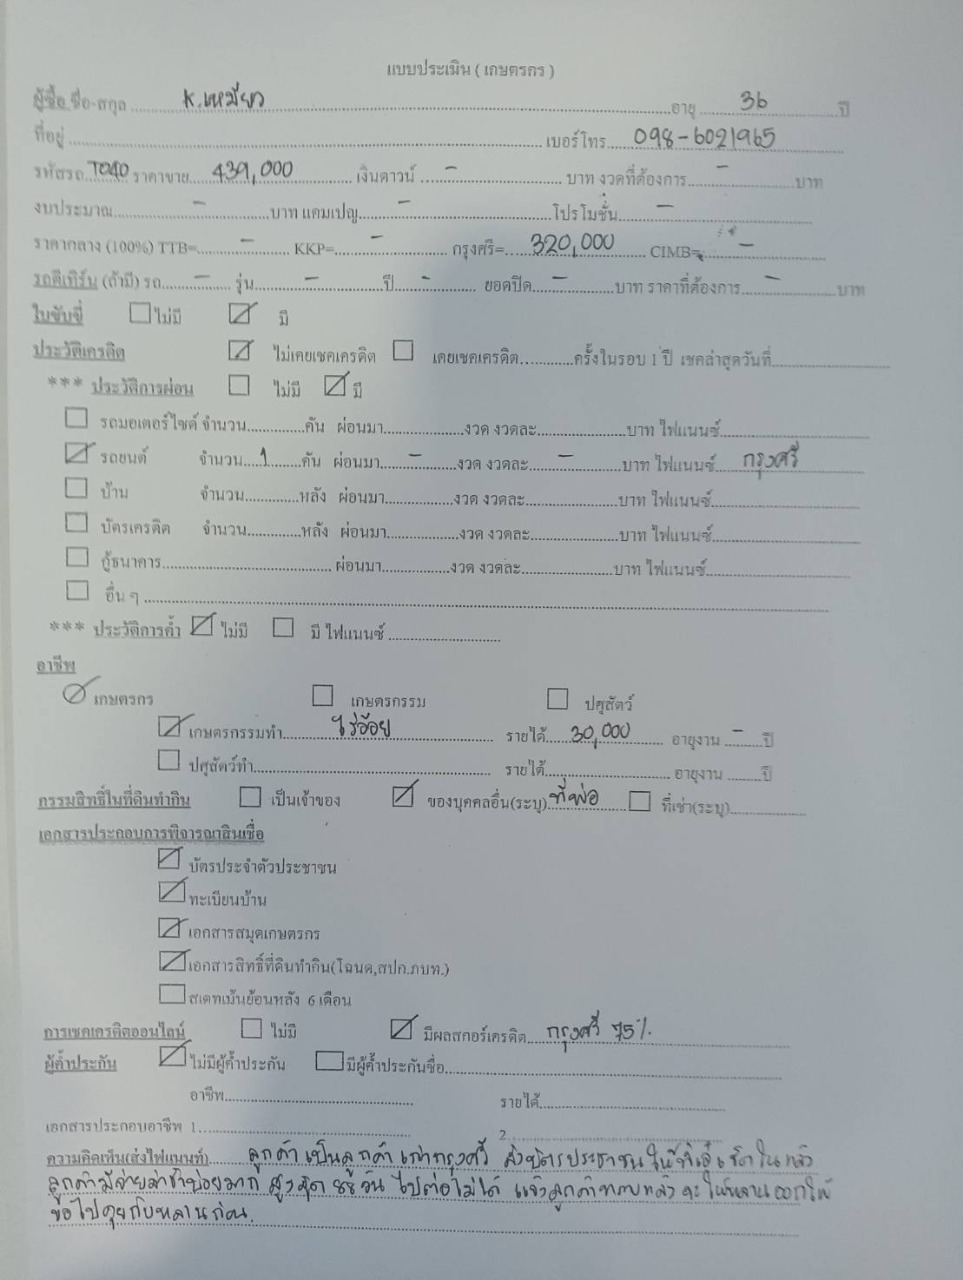 แบบประเมิน ( เกษตรกร )
ผู้ซื้อ ชื่อ-สกุล ........ K.เหมียว ........ อายุ ..... 36 ..... ปี
ที่อยู่ ........ เบอร์โทร.. 098-6021965
รหัสรถ.. T040 ราคาขาย... 439,000 ..... เงินดาวน์ ... - ..... บาท งวดที่ต้องการ..... - ..... บาท
งบประมาณ..... - .....บาท แคมเปญ..... - .....โปรโมชั่น..... -
ราคากลาง (100%) TTB=..... - ..... KKP=..... - ..... กรุงศรี=... 320,000 ..... CIMB=..... -
รถตีเทิร์น (ถ้ามี) รถ..... - ..... รุ่น..... - .....ปี..... - ..... ยอดปิด..... - .....บาท ราคาที่ต้องการ..... - .....บาท
ใบขับขี่ ☐ ไม่มี ☑ มี
ประวัติเครดิต ☑ ไม่เคยเชคเครดิต ☐ เคยเชคเครดิต............ครั้งในรอบ 1 ปี เชคล่าสุดวันที่............
*** ประวัติการผ่อน ☐ ไม่มี ☑ มี
☐ รถมอเตอร์ไซด์ จำนวน............คัน ผ่อนมา............งวด งวดละ............บาท ไฟแนนซ์............
☑ รถยนต์ จำนวน... 1 .....คัน ผ่อนมา..... - .....งวด งวดละ..... - .....บาท ไฟแนนซ์... กรุงศรี
☐ บ้าน จำนวน............หลัง ผ่อนมา............งวด งวดละ............บาท ไฟแนนซ์............
☐ บัตรเครดิต จำนวน............หลัง ผ่อนมา............งวด งวดละ............บาท ไฟแนนซ์............
☐ กู้ธนาคาร............ ผ่อนมา............งวด งวดละ............บาท ไฟแนนซ์............
☐ อื่น ๆ ............
*** ประวัติการค้ำ ☑ ไม่มี ☐ มี ไฟแนนซ์ ............
อาชีพ
เกษตรกร ☐ เกษตรกรรม ☐ ปศุสัตว์
☑ เกษตรกรรมทำ..... ไร่อ้อย ..... รายได้..... 30,000 ..... อายุงาน ... - ...ปี
☐ ปศุสัตว์ทำ............ รายได้............ อายุงาน ........ปี
กรรมสิทธิ์ในที่ดินทำกิน ☐ เป็นเจ้าของ ☑ ของบุคคลอื่น(ระบุ) ที่พ่อ ☐ ที่เช่า(ระบุ)............
เอกสารประกอบการพิจารณาสินเชื่อ
☑ บัตรประจำตัวประชาชน
☑ ทะเบียนบ้าน
☑ เอกสารสมุดเกษตรกร
☑ เอกสารสิทธิ์ที่ดินทำกิน(โฉนด,สปก.ภบท.)
☐ สเตทเม้นย้อนหลัง 6 เดือน
การเชคเครดิตออนไลน์ ☐ ไม่มี ☑ มีผลสกอร์เครดิต... กรุงศรี 75%.
ผู้ค้ำประกัน ☑ ไม่มีผู้ค้ำประกัน ☐ มีผู้ค้ำประกันชื่อ............
อาชีพ............ รายได้............
เอกสารประกอบอาชีพ 1............ 2............
ความคิดเห็น(ส่งไฟแนนท์)..... ลูกค้าเป็นลูกค้าเก่ากรุงศรี ส่งบัตรประชาชนให้ แล้ว
ลูกค้ามีจ่ายล่าช้าบ่อยมาก สูงสุด 88 วัน ไปต่อไม่ได้ แจ้งลูกค้าทราบแล้ว จะให้หลานออกให้
ขอไปคุยกับหลานก่อน.